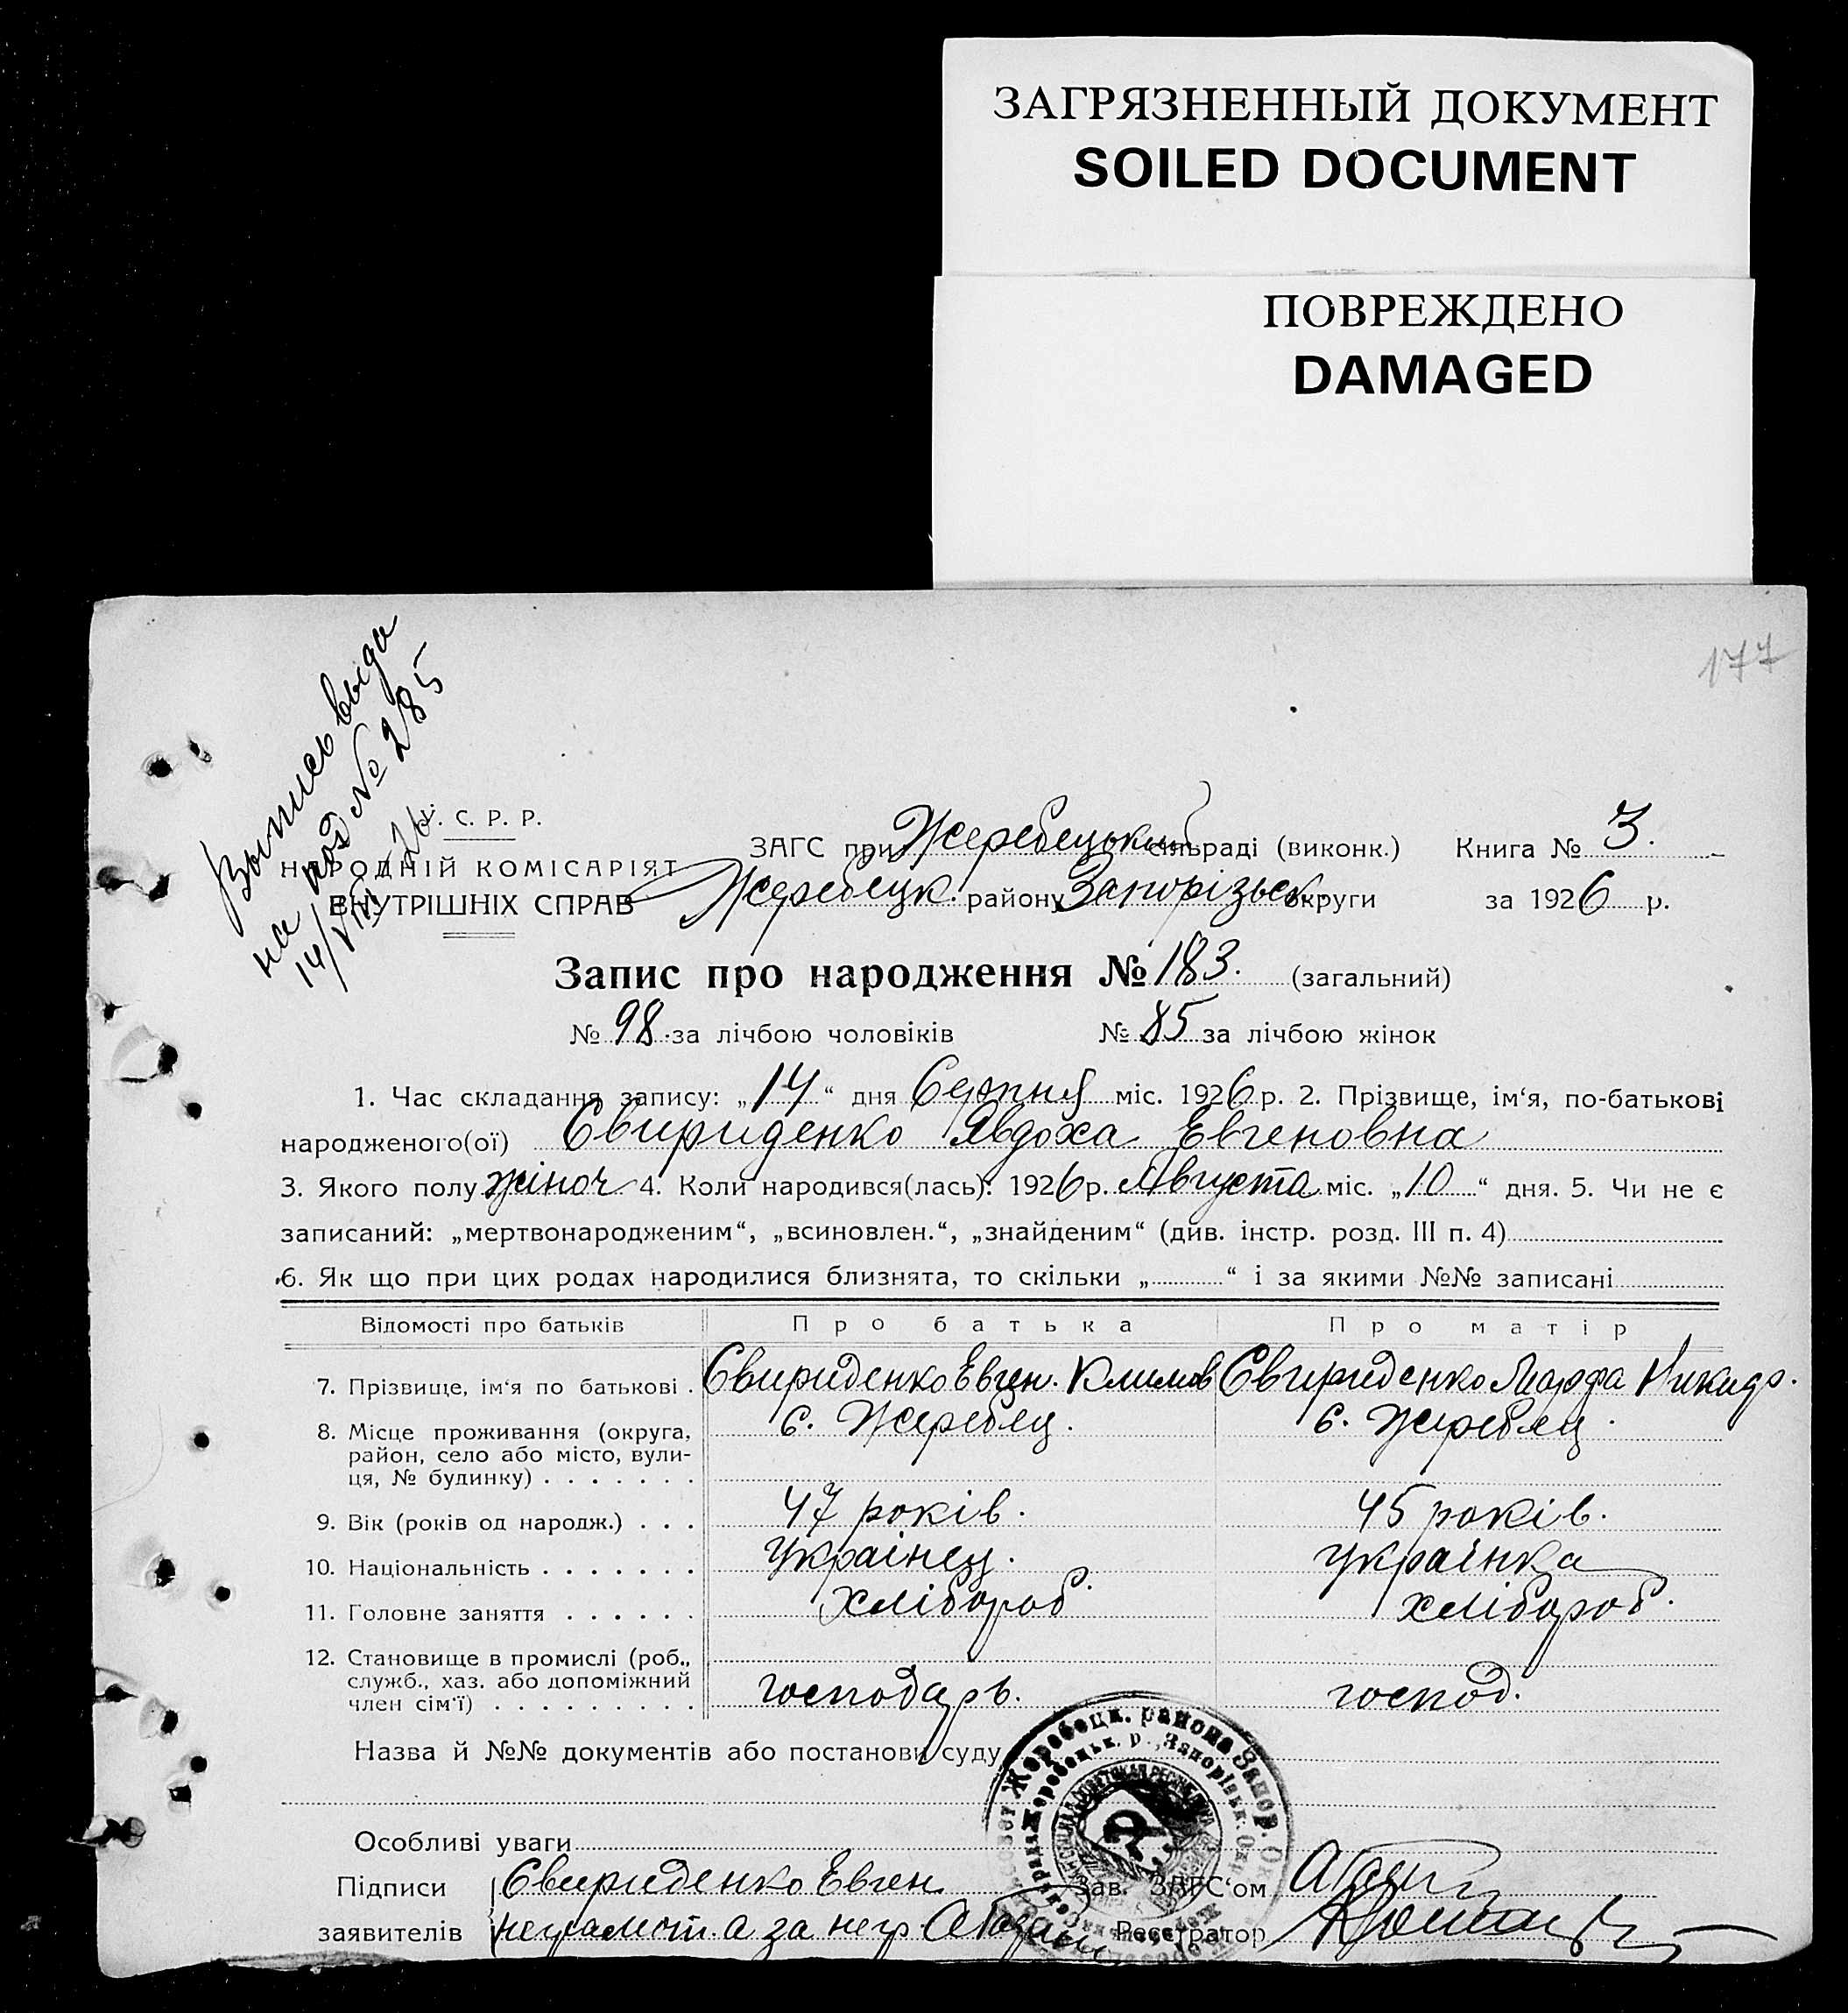 ЗАГРЯЗНЕННЫЙ ДОКУМЕНТ
SOILED DOCUMENT
ПОВРЕЖДЕНО
DAMAGED
177
Выпись выда
на под № 285
14/VIII 26
У. С. Р. Р.
НАРОДНІЙ КОМІСАРІЯТ
ВНУТРІШНІХ СПРАВ
ЗАГС при Жеребецький сільраді (виконк.) Книга № 3.
Жеребецк. району Запорізьск. округи за 1926 р.
Запис про народження № 183. (загальний)
№ 98. за лічбою чоловіків № 85 за лічбою жінок
1. Час складання запису: „14“ дня Серпня міс. 1926 р. 2. Прізвище, ім‘я, по-батькові
народженого(ої) Свириденко Явдоха Евгеновна
3. Якого полу жіноч. 4. Коли народився(лась): 1926 р. Августа міс. „10“ дня. 5. Чи не є
записаний: „мертвонародженим“, „всиновлен.“, „знайденим“ (див. інстр. розд. III п. 4)
6. Як що при цих родах народилися близнята, то скільки „ “ і за якими №№ записані
Відомості про батьків Про батька Про матір
7. Прізвище, ім‘я по батькові . Свириденко Евген. Климов Свириденко Марфа Никидр.
8. Місце проживання (округа, с. Жеребец. с. Жеребец.
район, село або місто, вули-
ця, № будинку) . . . . . . .
9. Вік (років од народж.) . . . 47 років. 45 років.
10. Національність . . . . . . . украінец. украінка
11. Головне заняття . . . . . . хлібороб. хлібороб.
12. Становище в промислі (роб.,
служб., хаз. або допоміжний
член сім‘ї) . . . . . . . . . господарь. господ.
Назва й №№ документів або постанови суду
Особливі уваги
Підписи Свириденко Евген Зав. ЗАГС‘ом
заявителів неграмот. а за негр. Реєстратор
Жеребецк. района Запор. Ок
Жеребецьк. р., Запорізьк. Окр